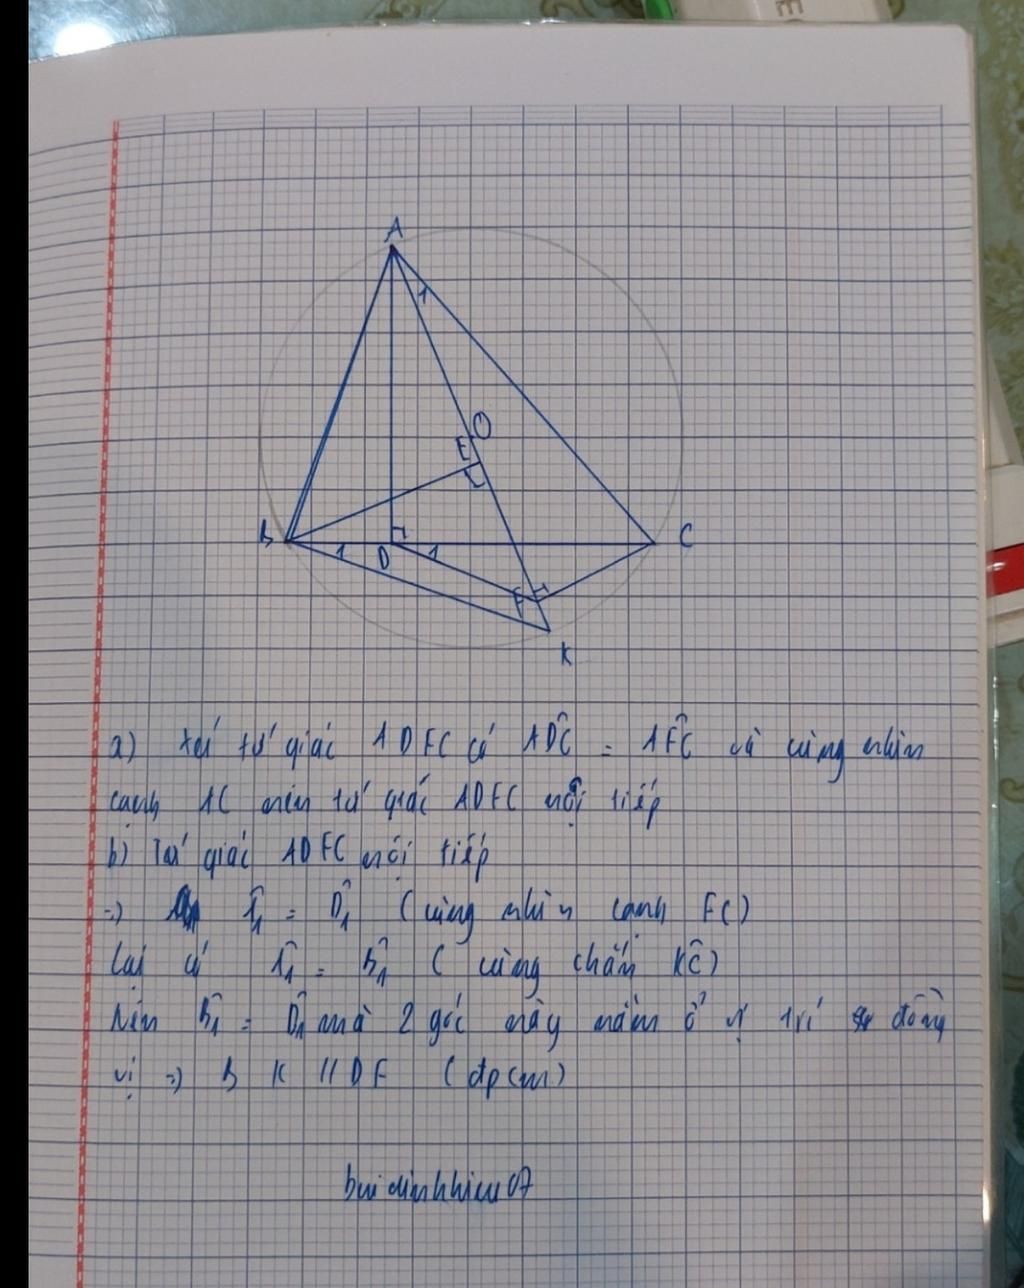 A
1
O
E
B
1
D
1
C
F
K
a) Xét tứ giác ADFC có ADC^ = AFC^ và cùng nhìn
cạnh AC nên tứ giác ADFC nội tiếp
b) Tứ giác ADFC nội tiếp
=> Â1 = D̂1 (cùng nhìn cạnh FC)
Lại có Â1 = B̂1 ( cùng chắn KC^)
Nên B̂1 = D̂1 mà 2 góc này nằm ở vị trí đồng
vị => BK // DF (đpcm)
buidinhhieu07